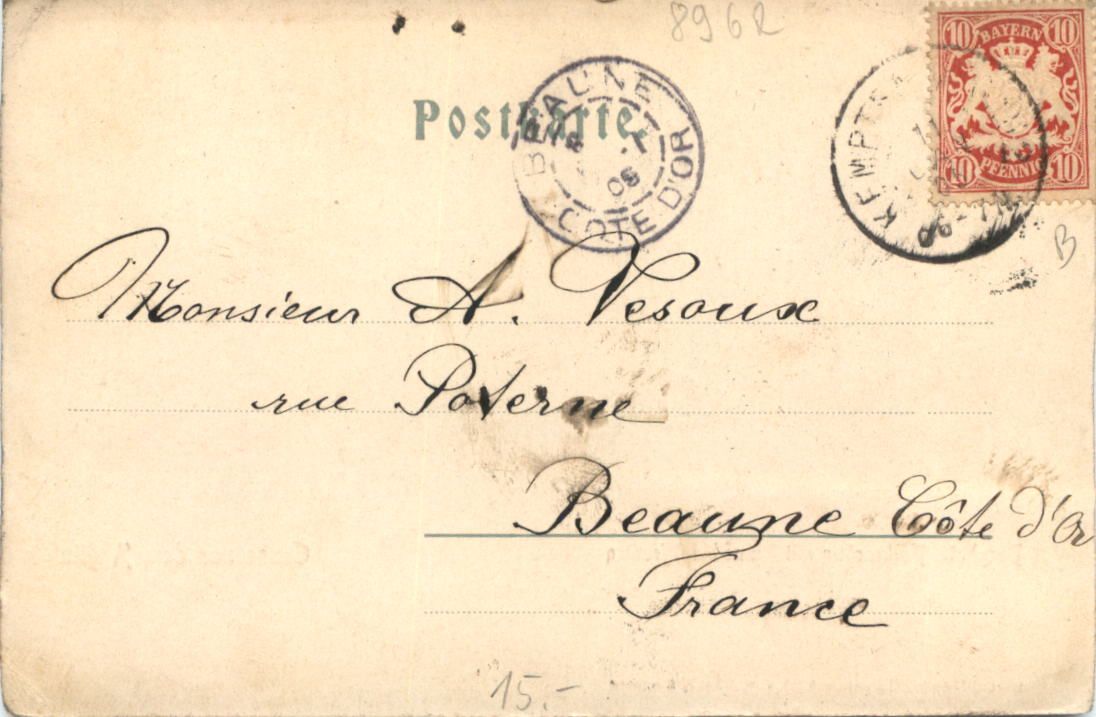 896R
BAYERN
10 10
10 PFENNIG 10
Postkarte.
BEAUNE
COTE D'OR
KEMPTEN
B
Monsieur A. Vesoux
rue Poterne
Beaune Côte d'Or
France
15.-